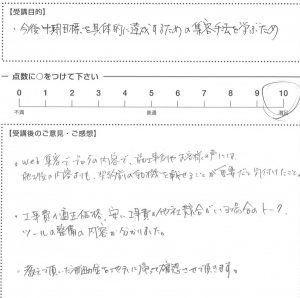 【受講目的】
・今後中期目標を具体的に達成するための集客手法を学ぶため
点数に○をつけて下さい
0 1 2 3 4 5 6 7 8 9 10
不満 普通 満足
【受講後のご意見・ご感想】
・Web集客でブログの内容で、施工事例やお客様の声には、
他の内容よりも、契約前の動機を載せることが重要だと
・工事費の適正価格、安い工事費の他社競合がいる場合のトーク、
ツールの整備の内容が分かりました。
・教えて頂いた 確認させて頂きます。